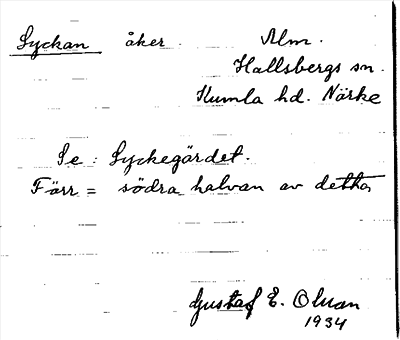 Lyckan åker. Alm.
Hallsbergs sn.
Kumla hd. Närke
Se: Lyckegärdet.
Förr = södra halvan av detta
Gustaf E. Olsson
1934